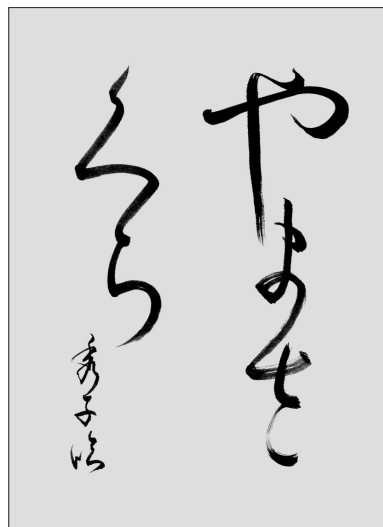 やまさ
くら
秀子臨